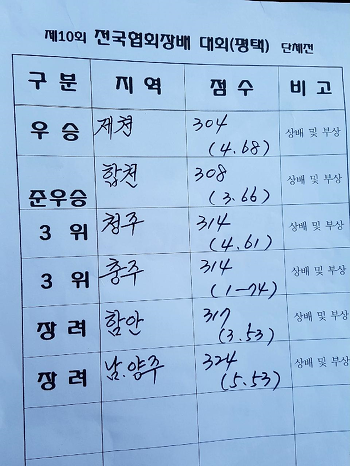 제10회 전국협회장배 대회(평택) 단체전
구 분 지 역 점 수 비 고
우 승 제천 304 상배 및 부상
(4.68)
합천 308 상배 및 부상
준우승 (3.66)
3 위 청주 314 상배 및 부상
(4.61)
3 위 충주 314 상배 및 부상
(1-74)
장 려 함안 317 상배 및 부상
(3.53)
장 려 남.양주 324 상배 및 부상
(5.53)